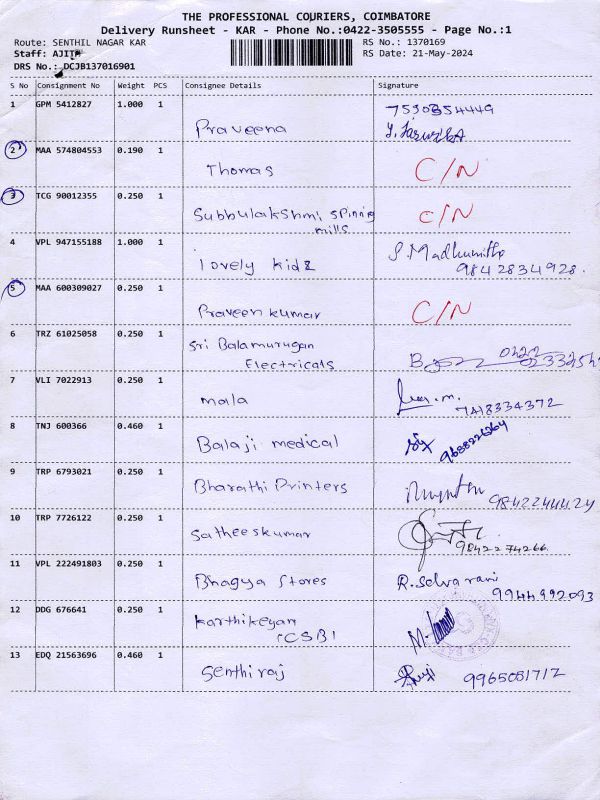 THE PROFESSIONAL COURIERS, COIMBATORE
Delivery Runsheet - KAR - Phone No.:0422-3505555 - Page No.:1
Route: SENTHIL NAGAR KAR RS No.: 1370169
Staff: AJITH RS Date: 21-May-2024
DRS No.: DCJB137016901
S No Consignment No Weight PCS Consignee Details Signature
1 GPM 5412827 1.000 1 7530354449
Praveena
2 MAA 574804553 0.190 1
Thomas C/N
3 TCG 90012355 0.250 1
Subbulakshmi spinnig C/N
mills
4 VPL 947155188 1.000 1 S. Madhumitha
lovely kids 9842834928.
5 MAA 600309027 0.250 1
Praveen kumar C/N
6 TRZ 61025058 0.250 1 Sri Balamurugan
Electricals
7 VLI 7022913 0.250 1
mala 7418334372
8 TNJ 600366 0.460 1
Balaji medical 9688226264
9 TRP 6793021 0.250 1
Bharathi Printers 9842244424
10 TRP 7726122 0.250 1
Satheeskumar 9842274266
11 VPL 222491803 0.250 1
Bhagya Stores R. Selvarani
9944992093
12 DDG 676641 0.250 1
karthikeyan
CSBI
13 EDQ 21563696 0.460 1
Senthiraj 9965081712